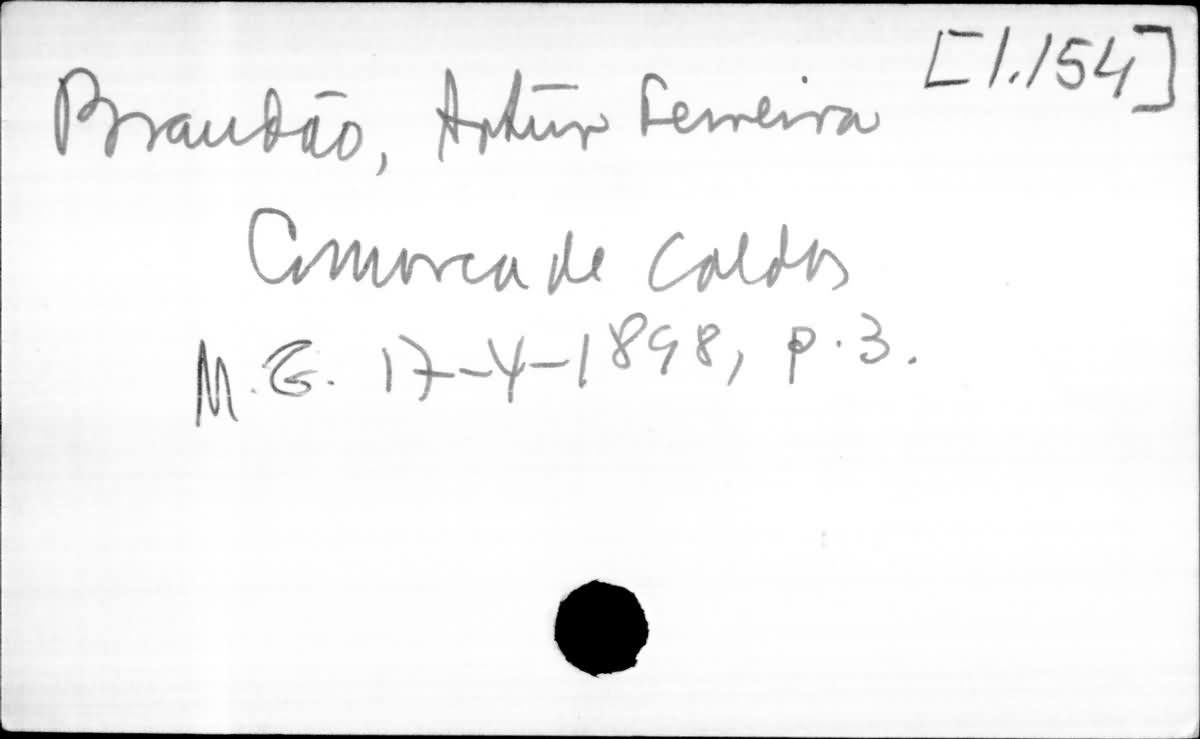 [1.154]
Brandão, Artur Ferreira
Comarca de Caldas
M.G. 17-4-1898, p.3.